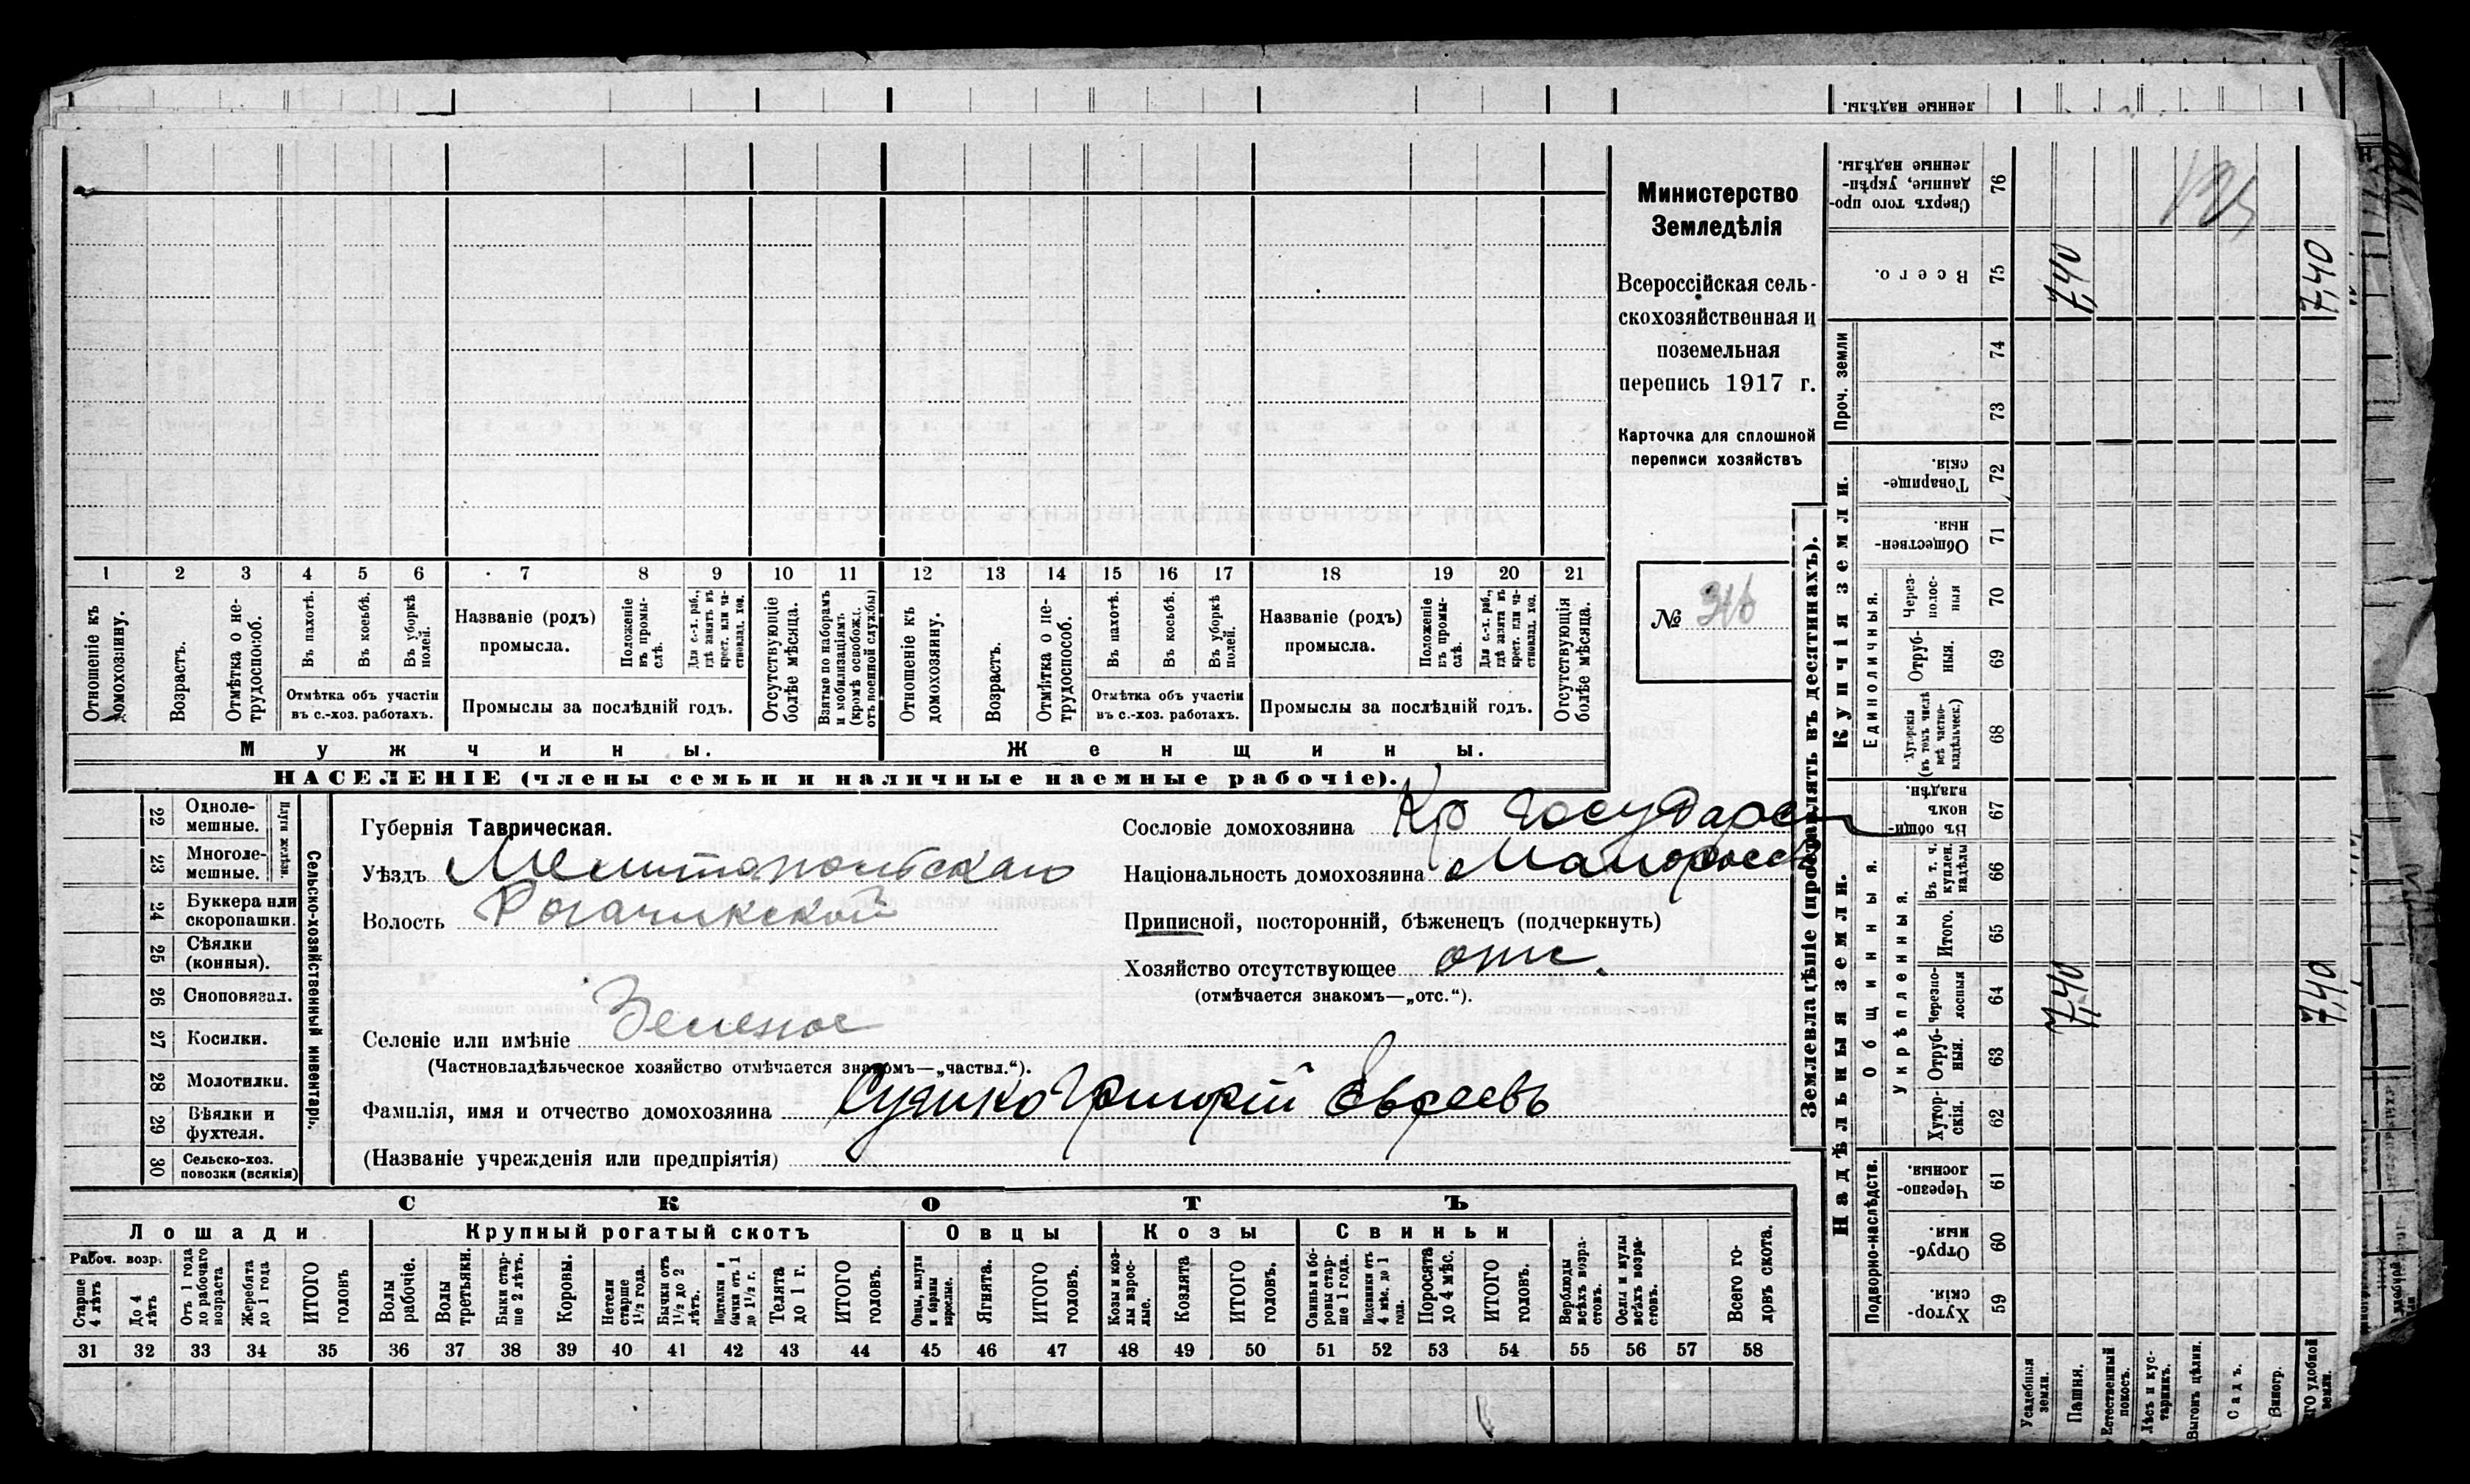 Министерство
Земледѣлія
Всероссійская сель-
скохозяйственная и
поземельная
перепись 1917 г.
Карточка для сплошной
переписи хозяйствъ
№ 316
1 2 3 4 5 6 7 8 9 10 11 12 13 14 15 16 17 18 19 20 21
Отношеніе къ домохозяину.
Возрастъ.
Отмѣтка о не-трудоспособ.
Въ пахотѣ.
Въ косьбѣ.
Въ уборкѣ полей.
Отмѣтка объ участіи
въ с.-хоз. работахъ.
Названіе (родъ)
промысла.
Положеніе въ промы-слѣ.
Для с.-х. раб., гдѣ занятъ въ крест. или ча-стновлад. хоз.
Промыслы за послѣдній годъ.
Отсутствующіе болѣе мѣсяца.
Взятые по наборамъ и мобилизаціямъ (кромѣ освобож. отъ военной службы)
Отношеніе къ домохозяину.
Возрастъ.
Отмѣтка о не-трудоспособ.
Въ пахотѣ.
Въ косьбѣ.
Въ уборкѣ полей.
Отмѣтка объ участіи
въ с.-хоз. работахъ.
Названіе (родъ)
промысла.
Положеніе въ промы-слѣ.
Для с.-х. раб., гдѣ занята въ крест. или ча-стновлад. хоз.
Промыслы за послѣдній годъ.
Отсутствующія болѣе мѣсяца.
Мужчины. Женщины.
НАСЕЛЕНІЕ (члены семьи и наличные наемные рабочіе).
22 Одноле-мешные.
23 Многоле-мешные.
Плуги желѣзн.
24 Буккера или скоропашки.
25 Сѣялки (конныя).
26 Сноповязал.
27 Косилки.
28 Молотилки.
29 Вѣялки и фухтеля.
30 Сельско-хоз. повозки (всякія)
Сельско-хозяйственный инвентарь.
Губернія Таврическая.
Уѣздъ Мелитопольскаго
Волость Рогачикской
Селеніе или имѣніе Зеленое
(Частновладѣльческое хозяйство отмѣчается знакомъ—„частвл.“).
Фамилія, имя и отчество домохозяина Григорій
(Названіе учрежденія или предпріятія)
Сословіе домохозяина Кр государст
Національность домохозяина Малороссъ
Приписной, посторонній, бѣженецъ (подчеркнуть)
Хозяйство отсутствующее отс.
(отмѣчается знакомъ—„отс.“).
СКОТЪ
Лошади Крупный рогатый скотъ Овцы Козы Свиньи
Рабоч. возр.
Старше 4 лѣтъ
До 4 лѣтъ
Отъ 1 года до рабочаго возраста
Жеребята до 1 года
ИТОГО головъ
Волы рабочіе.
Волы третьяки.
Быки стар-ше 2 лѣтъ.
Коровы.
Нетели старше 1½ года.
Бычки отъ 1½ до 2 лѣтъ.
Подтелки и бычки отъ 1 до 1½ г.
Телята до 1 г.
ИТОГО головъ.
Овцы, валухи и бараны взрослые.
Ягнята.
ИТОГО головъ.
Козы и коз-лы взрос-лые.
Козлята
ИТОГО головъ.
Свиньи и бо-ровы стар-ше 1 года.
Подсвинки отъ 4 мѣс. до 1 года.
Поросята до 4 мѣс.
ИТОГО головъ.
Верблюды всѣхъ возра-стовъ.
Ослы и мулы всѣхъ возра-стовъ.
Всего го-ловъ скота.
31 32 33 34 35 36 37 38 39 40 41 42 43 44 45 46 47 48 49 50 51 52 53 54 55 56 57 58
Землевладѣніе (проставлять въ десятинахъ).
Надѣльныя земли.
Купчія земли.
Проч. земли
Подворно-наслѣдств.
Общинныя.
Укрѣпленныя.
Единоличныя.
59 Хутор-скія
60 Отруб-ныя.
61 Черезпо-лосныя.
62 Хутор-скія.
63 Отруб-ныя.
64 Черезпо-лосныя
65 Итого.
66 Въ т. ч. куплен. надѣлы
67 Въ общин-номъ владѣн.
68 Хуторскія (въ томъ числѣ всѣ частно-владѣльческ.)
69 Отруб-ныя.
70 Через-полос-ныя
71 Обществен-ныя.
72 Товарище-скія.
73
74
75 Всего.
76 Сверхъ того про-данные, укрѣп-ленные надѣлы.
ленные надѣлы.
Усадебныя земли.
Пашня.
Естественный покосъ.
Лѣсъ и кус-тарникъ.
Выгонъ цѣлин.
Садъ.
Виногр.
7,40 7,40
7,40 7,40